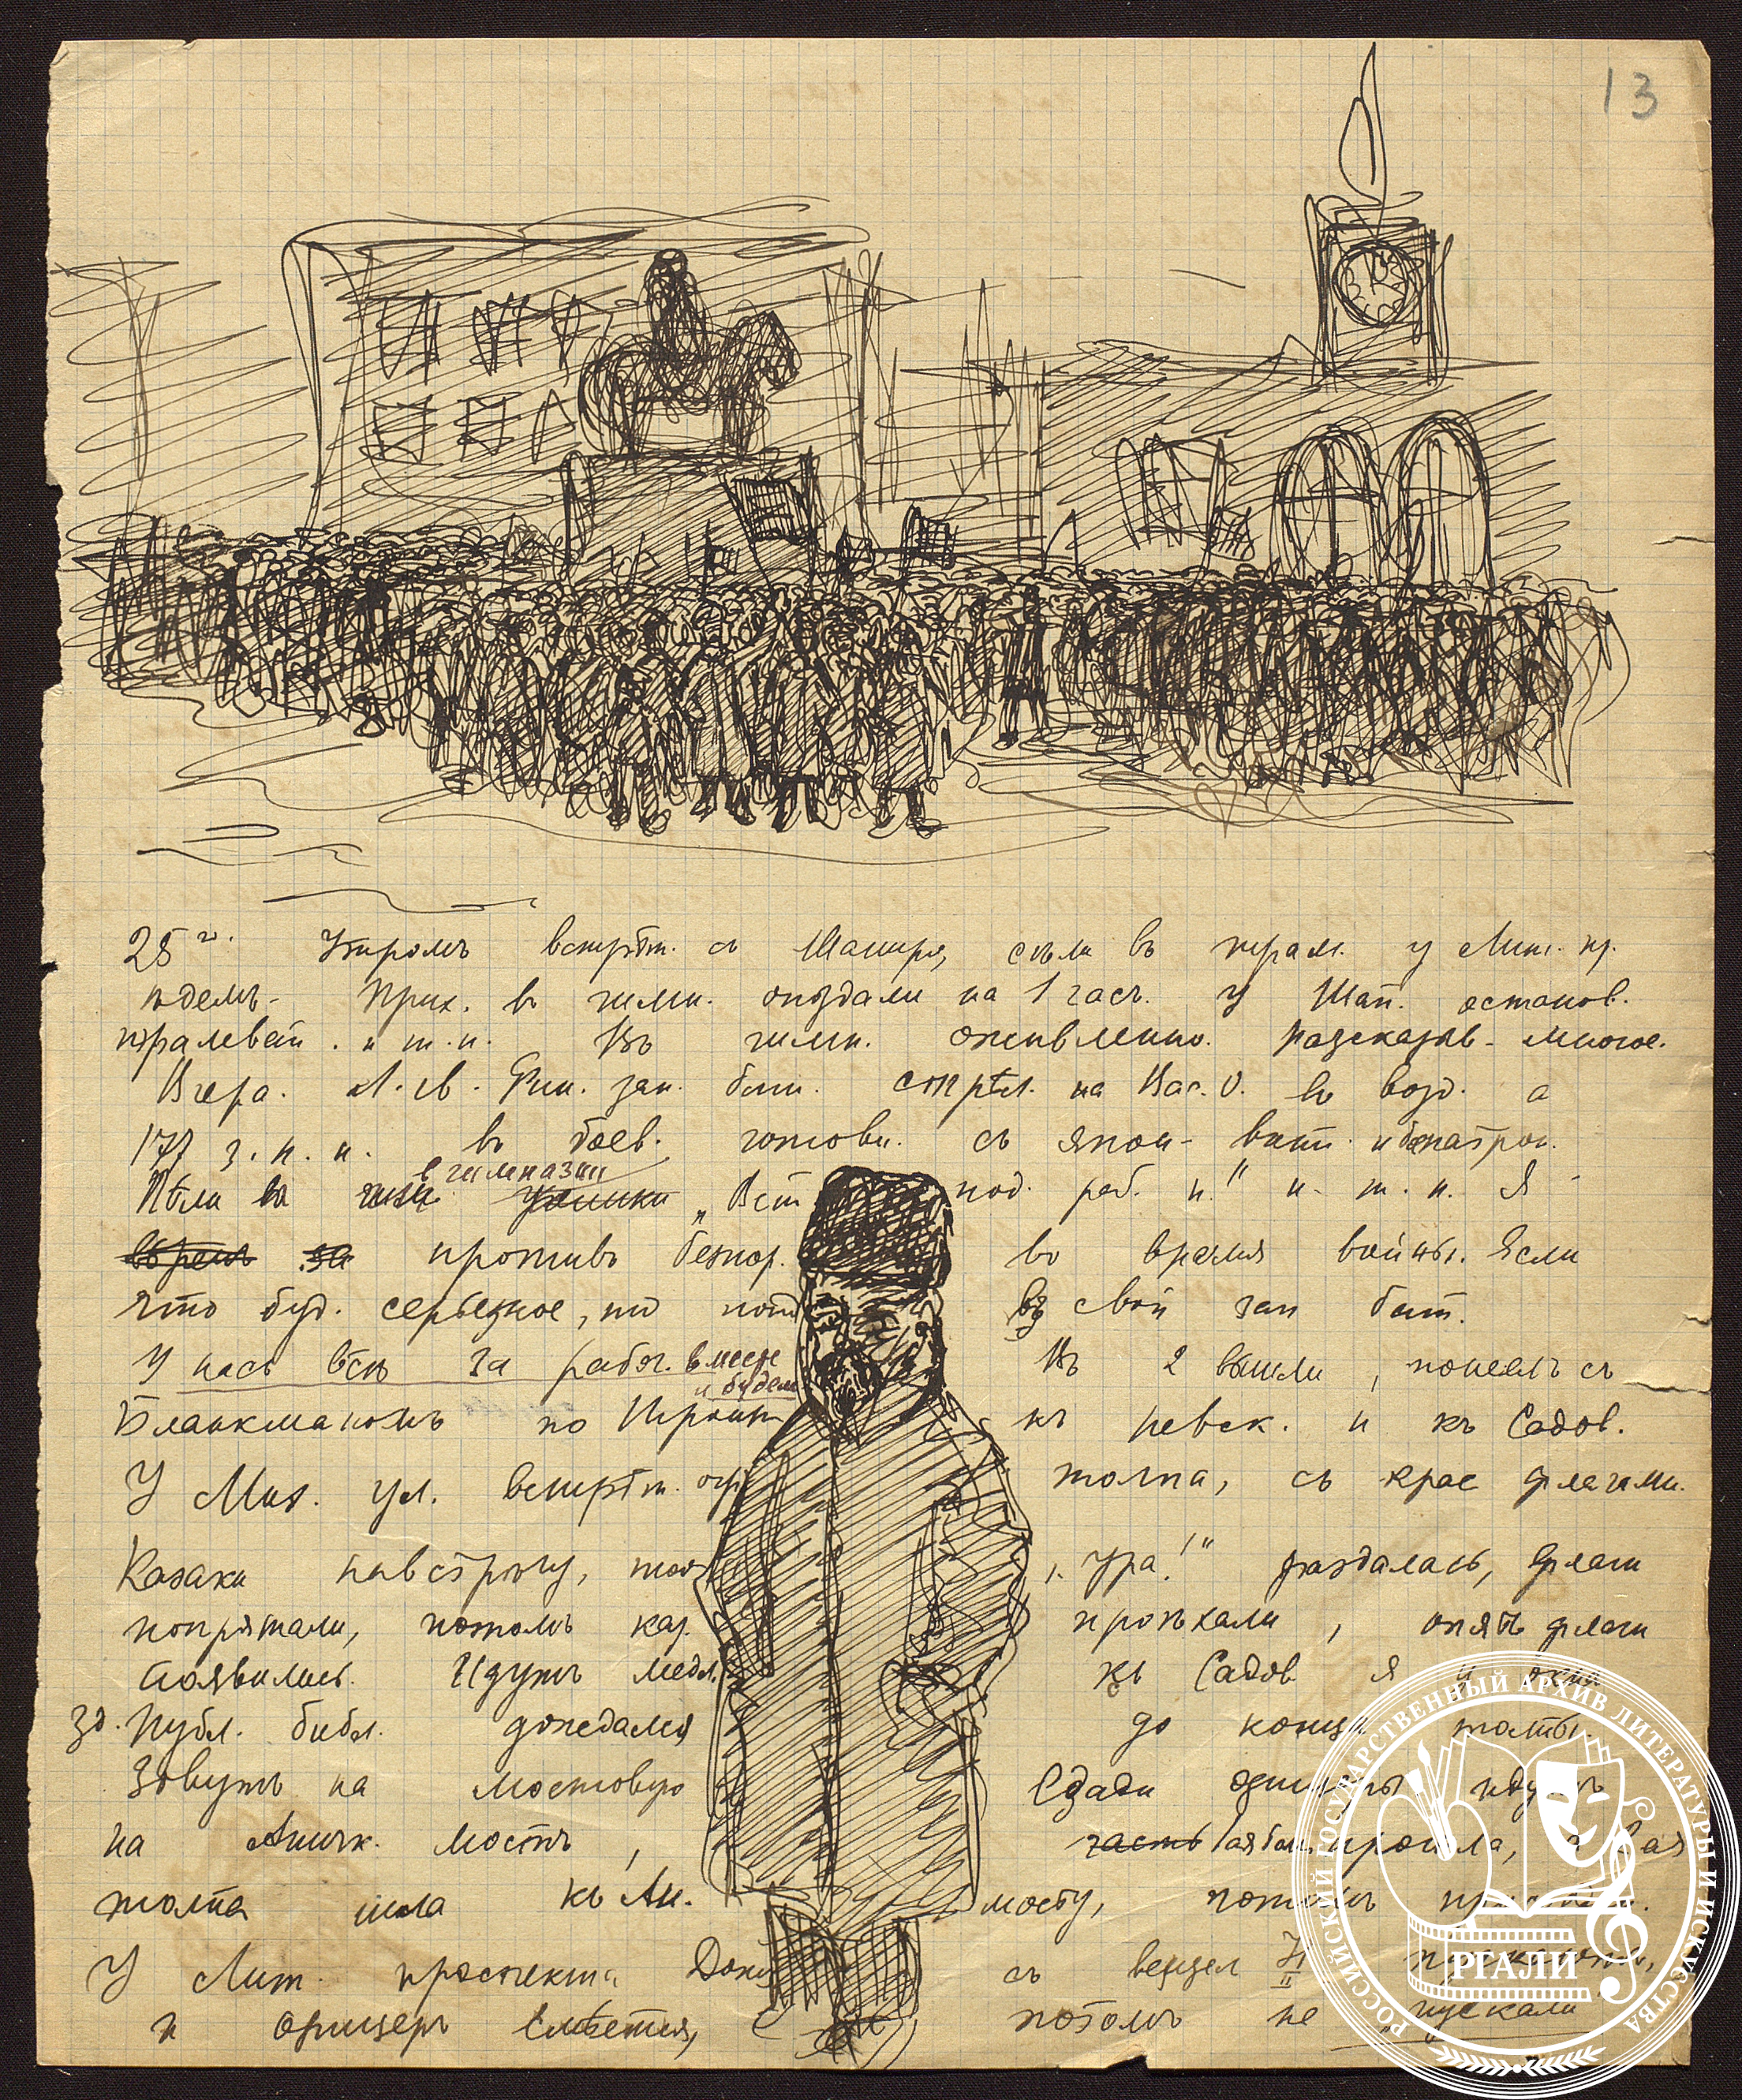 13
25го. Утромъ встрѣт. съ Шапиро, сѣли въ трам. у Лит. пр.
Прих. въ гимн. опоздали на 1 часъ. У Шап. останов.
трамвай. и т. п. Въ гимн. оживленно. Разсказыв. многое.
Вчера. Л. гв. Фин. зап. бат. стрѣл. на Вас. О. въ возд. а
177 з. п. п. въ боев. готовн. съ япон. винт. и
Пѣли въ гимназіи „Вст под. раб. н.“ и. т. п. Я
против безпор. во время войны. Если
что буд. серьезное, то пойд въ свой зап бат.
У насъ всѣ за рабоч. вмѣст и будем Въ 2 вышли, пошелъ съ
Бланкманомъ по къ невск. и къ Садов.
У Мих. ул. встрѣт. огр толпа, съ крас флагами.
Казаки навстрѣчу, толп „ура!“ раздалась, флаги
попрятали, потомъ каз. проѣхали, опять флаги
появились. Идутъ медл. къ Садов Я у окна
зд. Публ. библ. дожедался до конца толпы.
Зовутъ на мостовую Сзади идутъ
на Аничк. мостъ, часть прошла, а
толпа шла къ Ан. мосту, потомъ
У Лит. проспекта съ вензел H II
и офицеръ смѣется, потомъ не „пускали“
РОССИЙСКИЙ ГОСУДАРСТВЕННЫЙ АРХИВ ЛИТЕРАТУРЫ И ИСКУССТВА
РГАЛИ